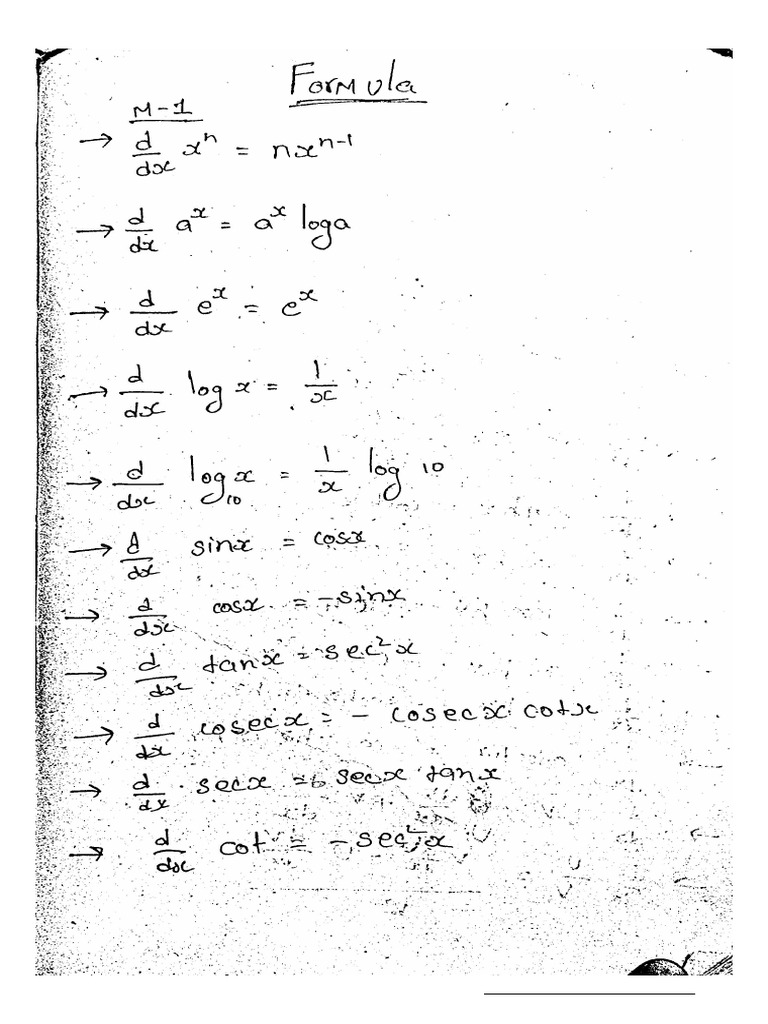 Formula
M-1
→ d/dx xⁿ = nxⁿ⁻¹
→ d/dx aˣ = aˣ loga
→ d/dx eˣ = eˣ
→ d/dx log x = 1/x
→ d/dx log₁₀ x = 1/x log 10
→ d/dx sinx = cosx
→ d/dx cosx = -sinx
→ d/dx tanx = sec²x
→ d/dx cosecx = - cosecx cotx
→ d/dx secx = secx tanx
→ d/dx cot = -sec²x